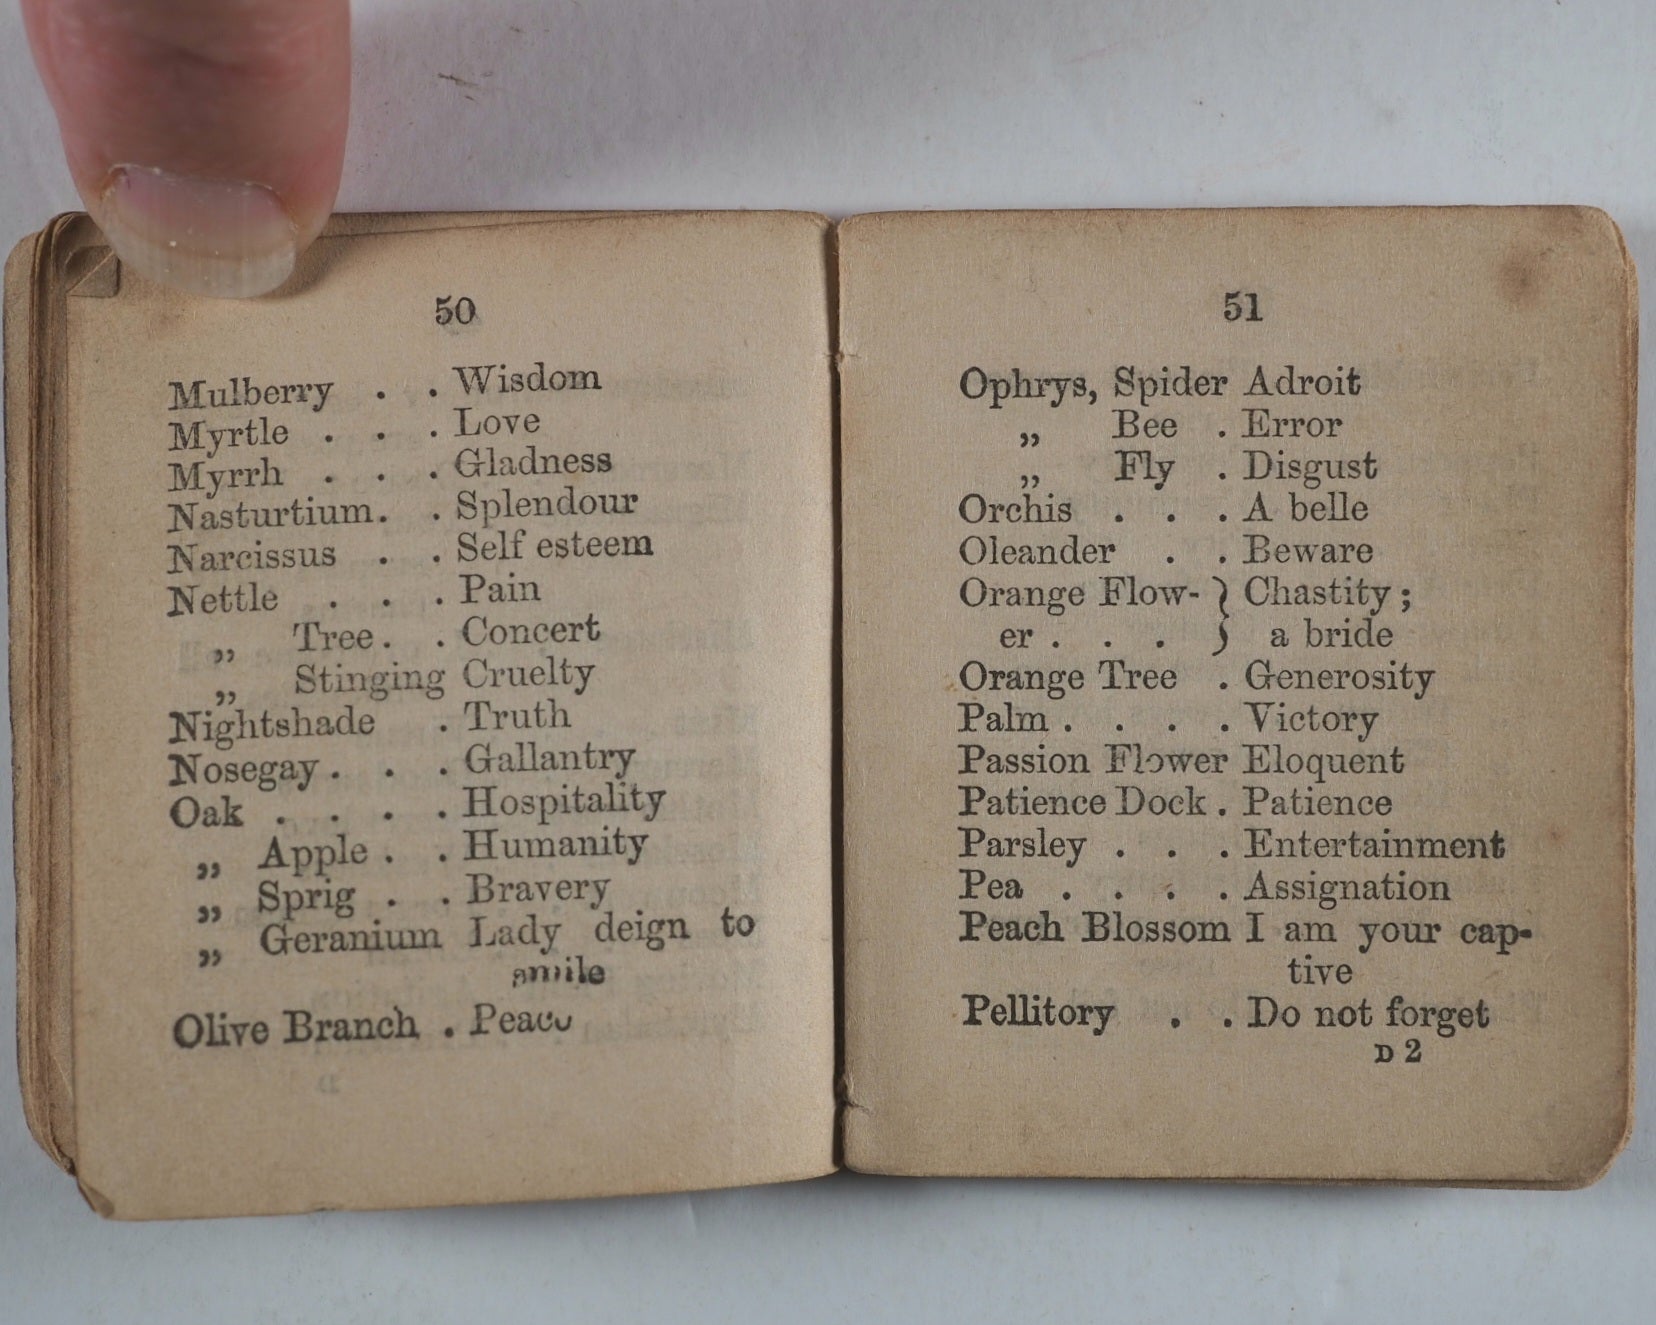 50
Mulberry . . Wisdom
Myrtle . . . Love
Myrrh . . . Gladness
Nasturtium. . Splendour
Narcissus . . Self esteem
Nettle . . . Pain
„ Tree. . Concert
„ Stinging Cruelty
Nightshade . Truth
Nosegay . . . Gallantry
Oak . . . . Hospitality
„ Apple . . Humanity
„ Sprig . . Bravery
„ Geranium Lady deign to
smile
Olive Branch . Peace
51
Ophrys, Spider Adroit
„ Bee . Error
„ Fly . Disgust
Orchis . . . A belle
Oleander . . Beware
Orange Flow- } Chastity ;
er . . . } a bride
Orange Tree . Generosity
Palm . . . . Victory
Passion Flower Eloquent
Patience Dock . Patience
Parsley . . . Entertainment
Pea . . . . Assignation
Peach Blossom I am your cap-
tive
Pellitory . . Do not forget
D 2